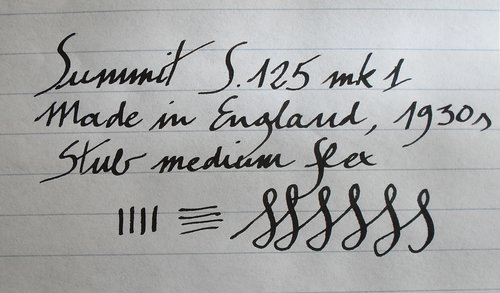 Summit S.125 mk 1
Made in England, 1930s
Stub medium flex